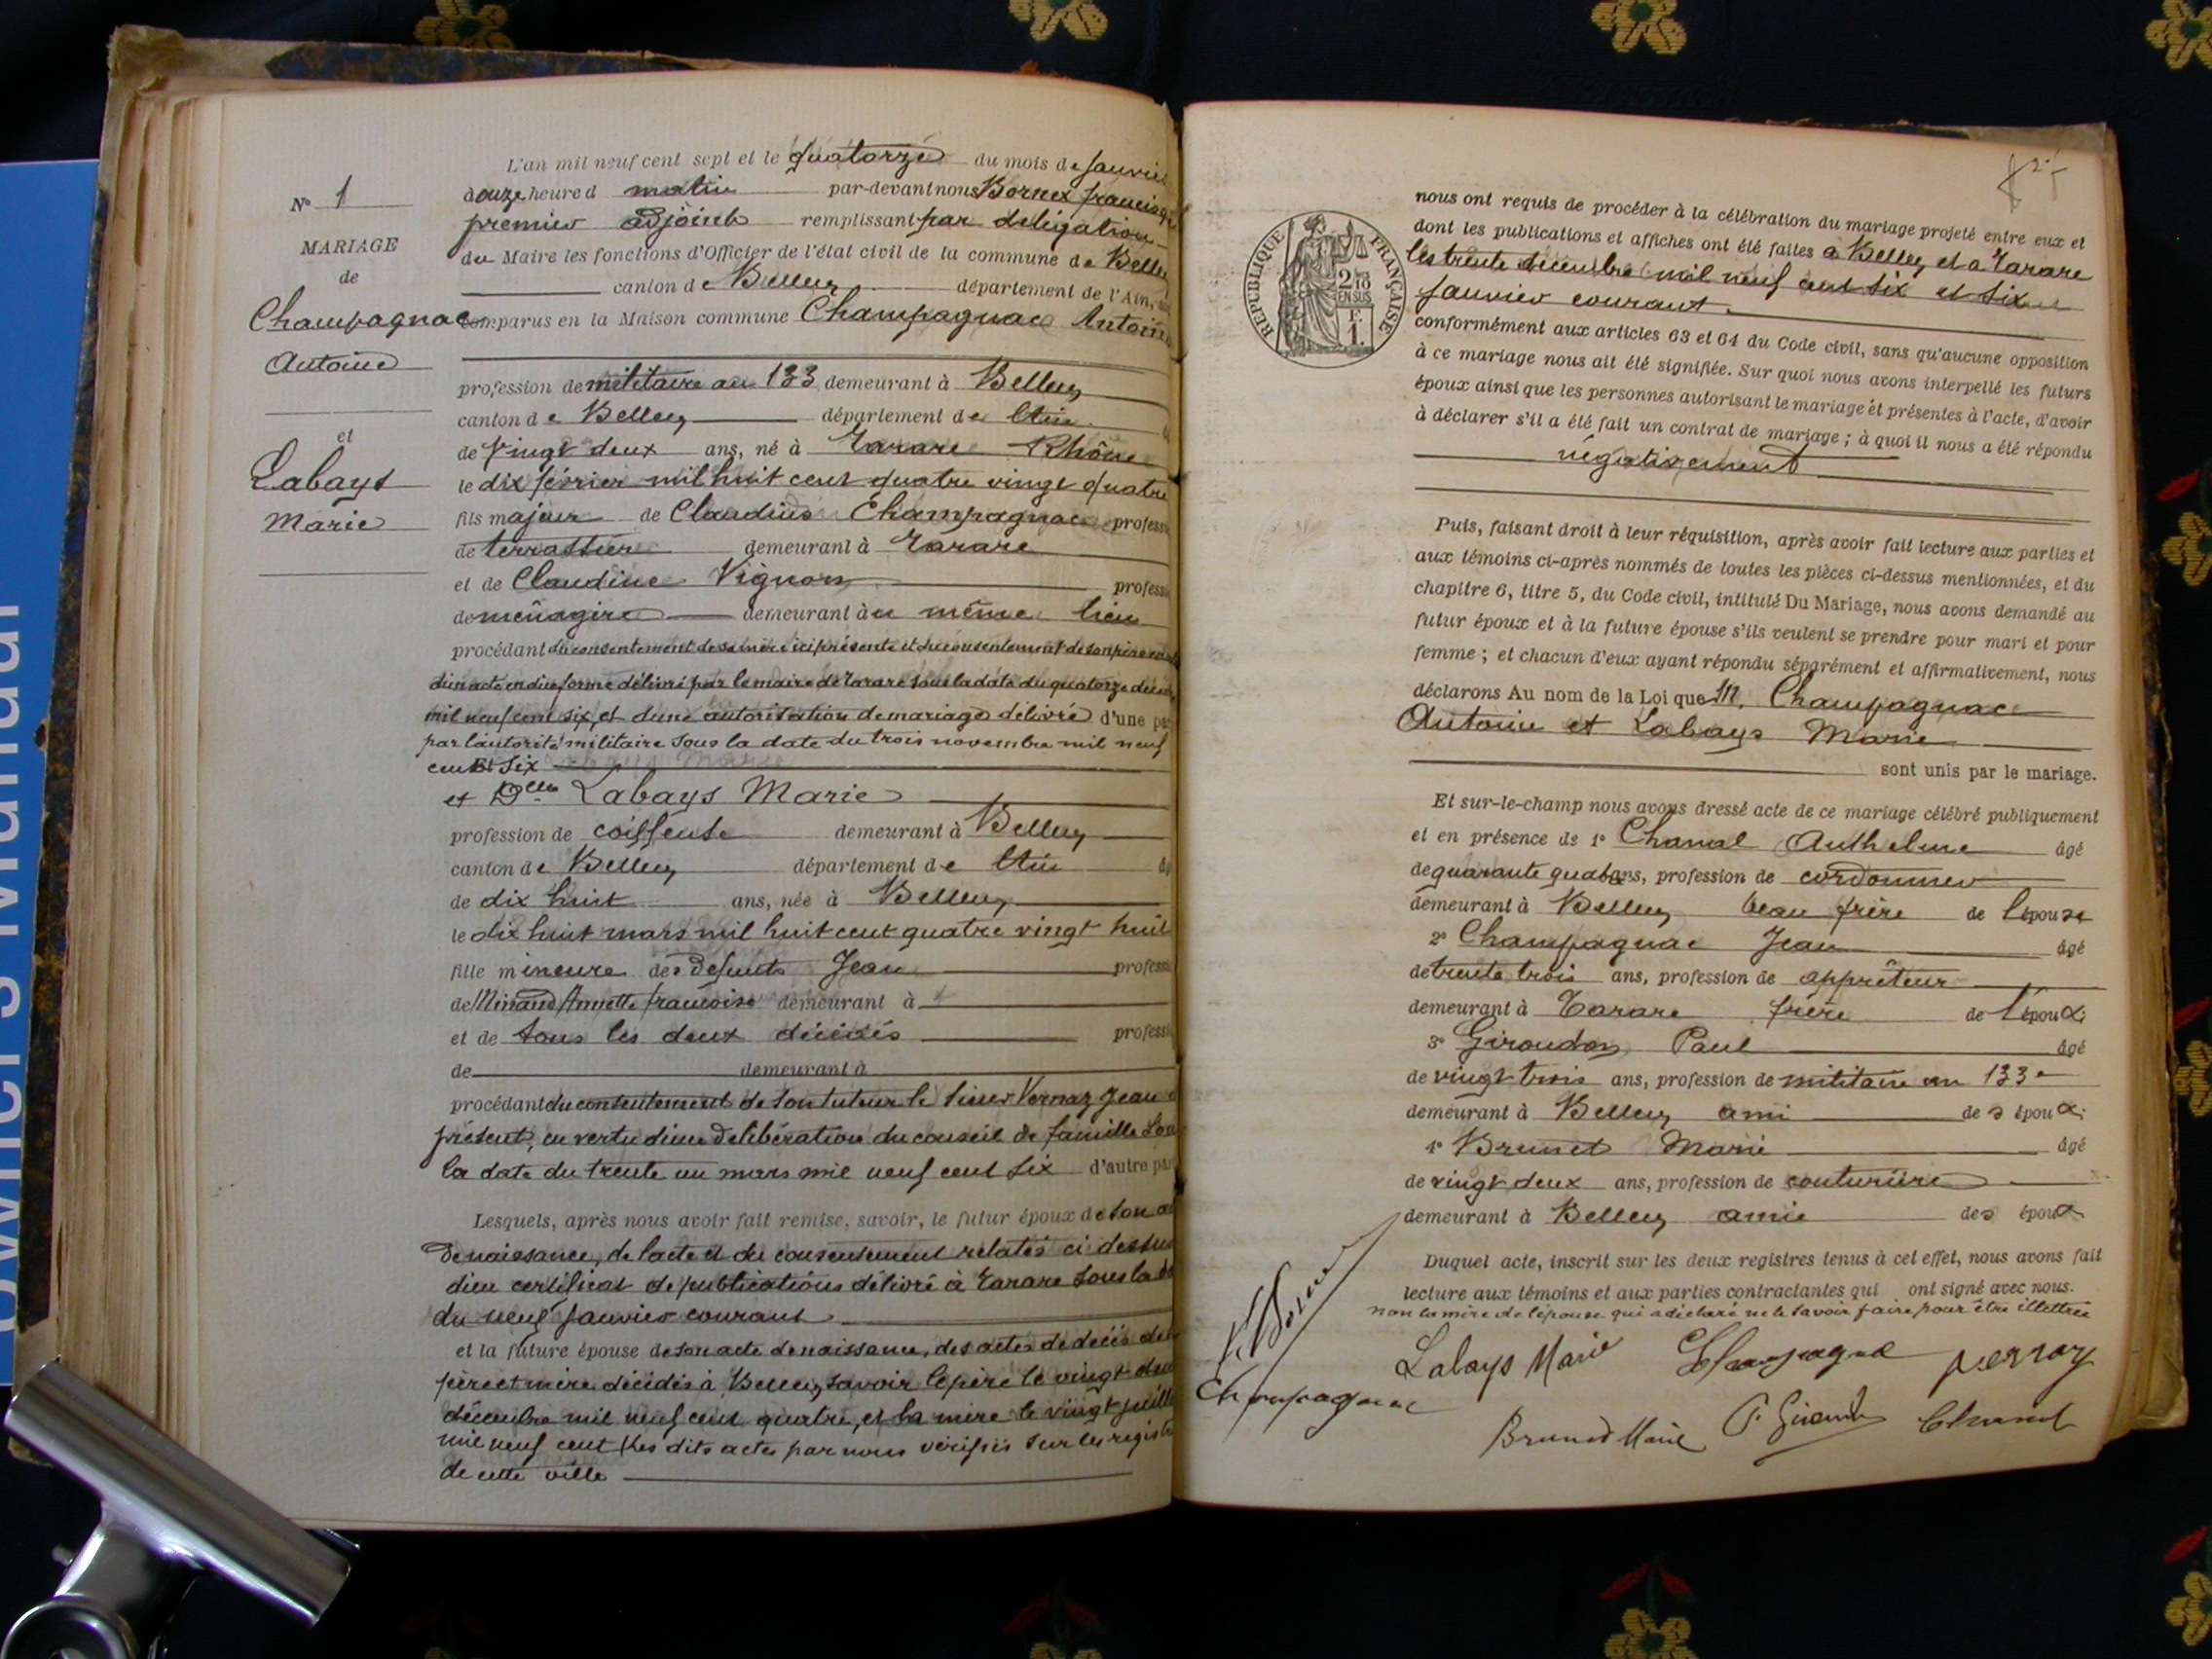 L'an mil neuf cent sept et le quatorze du mois de janvier
à onze heure d matin par-devant nous Bornex
premier adjoint remplissant par délégation
du Maire les fonctions d'Officier de l'état civil de la commune de Belley
canton de Belley département de l'Ain,
comparus en la Maison commune Champagnac Antoine
profession de militaire au 133 demeurant à Belley
canton de Belley département de l'Ain
de vingt deux ans, né à Tarare Rhône
le dix février mil huit cent quatre vingt quatre
fils majeur de Claudius Champagnac profess
de terrassier demeurant à Tarare
et de Claudine Vignon profess
de ménagère demeurant à au même lieu
procédant du consentement de sa mère ici présente et du consentement de son père
d'un acte en due forme délivré par le maire de Tarare sous la date du quatorze
mil neuf cent six, et d'une autorisation de mariage délivré d'une pa
par l'autorité militaire sous la date du trois novembre mil neuf
cent six
et Dlle Labays Marie
profession de coiffeuse demeurant à Belley
canton de Belley département de l'Ain
de dix huit ans, née à Belley
le dix huit mars mil huit cent quatre vingt huit
fille mineure des défunts Jean profess
de Minand Annette françoise demeurant à
et de tous les deux décédés profess
de demeurant à
procédant du consentement de son tuteur le sieur Vernaz Jean
présent, en vertu d'une délibération du conseil de famille sou
la date du trente un mars mil neuf cent six d'autre par
Lesquels, après nous avoir fait remise, savoir, le futur époux de son
de naissance, de l'acte et du consentement relatés ci dessus
d'un certificat de publications délivré à Tarare sous la
du neuf janvier courant
et la future épouse de son acte de naissance, des actes de décès de
père et mère décédés à Belley, savoir le père le vingt
décembre mil neuf cent quatre, et la mère le vingt juille
mil neuf cent les dits actes par nous vérifiés sur les regist
de cette ville
N° 1
MARIAGE
de
Champagnac
Antoine
et
Labays
Marie
nous ont requis de procéder à la célébration du mariage projeté entre eux et
dont les publications et affiches ont été faites à Belley et à Tarare
les trente décembre mil neuf cent six et six
janvier courant.
conformément aux articles 63 et 64 du Code civil, sans qu'aucune opposition
à ce mariage nous ait été signifiée. Sur quoi nous avons interpellé les futurs
époux ainsi que les personnes autorisant le mariage et présentes à l'acte, d'avoir
à déclarer s'il a été fait un contrat de mariage ; à quoi il nous a été répondu
négativement
REPUBLIQUE FRANÇAISE
2/10
EN SUS
F.
1.
Puis, faisant droit à leur réquisition, après avoir fait lecture aux parties et
aux témoins ci-après nommés de toutes les pièces ci-dessus mentionnées, et du
chapitre 6, titre 5, du Code civil, intitulé Du Mariage, nous avons demandé au
futur époux et à la future épouse s'ils veulent se prendre pour mari et pour
femme ; et chacun d'eux ayant répondu séparément et affirmativement, nous
déclarons Au nom de la Loi que M. Champagnac
Antoine et Labays Marie
sont unis par le mariage.
Et sur-le-champ nous avons dressé acte de ce mariage célébré publiquement
et en présence de 1° Chanal Anthelme âgé
de quarante quatre ans, profession de cordonnier
demeurant à Belley beau frère de l'épouse
2° Champagnac Jean âgé
de trente trois ans, profession de apprêteur
demeurant à Tarare frère de l'époux
3° Giroudon Paul âgé
de vingt trois ans, profession de militaire au 133e
demeurant à Belley ami des époux
4° Brunet Marie âgé
de vingt deux ans, profession de couturière
demeurant à Belley amie des époux
Duquel acte, inscrit sur les deux registres tenus à cet effet, nous avons fait
lecture aux témoins et aux parties contractantes qui ont signé avec nous.
non la mère de l'épouse qui a déclaré ne le savoir faire pour être illettrée
Labays Marie Champagnac Vernaz
Champagnac
Brunet Marie P. Giroudon Chanal